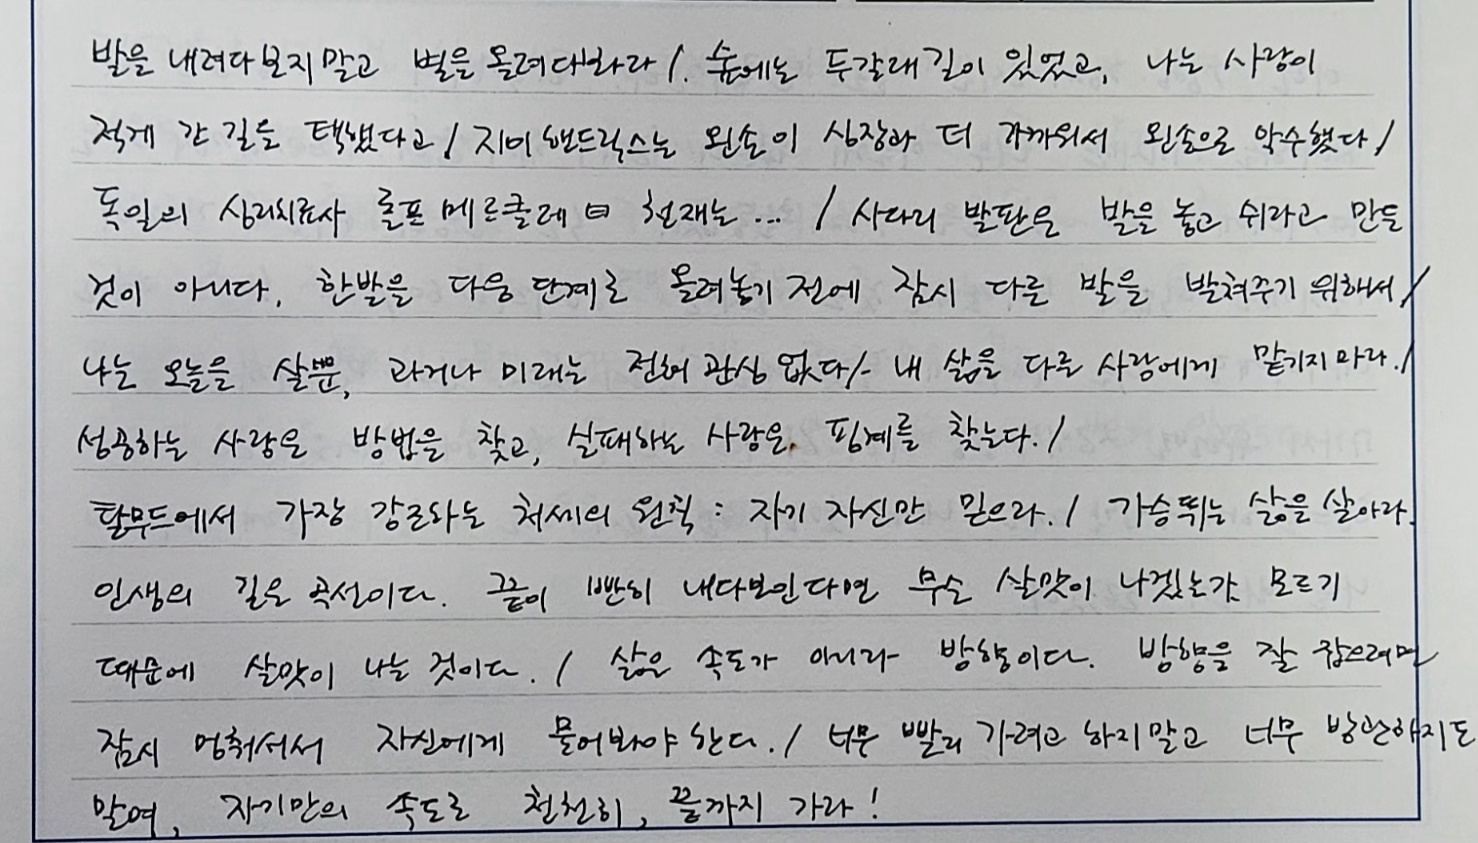 발을 내려다보지 말고 별을 올려다봐라 /. 숲에는 두갈래 길이 있었고, 나는 사람이
적게 간 길을 택했다고 / 지미 핸드릭스는 왼손이 심장과 더 가까워서 왼손으로 악수했다 /
독일의 심리치료사 롤프 메르클레 曰 천재는 ... / 사다리 발판은 발을 놓고 쉬라고 만든
것이 아니다. 한발을 다음 단계로 올려놓기 전에 잠시 다른 발을 받쳐주기 위해서 /
나는 오늘을 살뿐, 과거나 미래는 전혀 관심 없다 /- 내 삶을 다른 사람에게 맡기지 마라. /
성공하는 사람은 방법을 찾고, 실패하는 사람은 핑계를 찾는다. /
탈무드에서 가장 강조하는 처세의 원칙 : 자기 자신만 믿으라. / 가슴뛰는 삶을 살아라.
인생의 길은 곡선이다. 끝이 빤히 내다보인다면 무슨 살맛이 나겠는가. 모르기
때문에 살맛이 나는 것이다. / 삶은 속도가 아니라 방향이다. 방향을 잘 잡으려면
잠시 멈춰서서 자신에게 물어봐야 한다. / 너무 빨리 가려고 하지말고 너무 방관하지도
말며, 자기만의 속도로 천천히, 끝까지 가라!